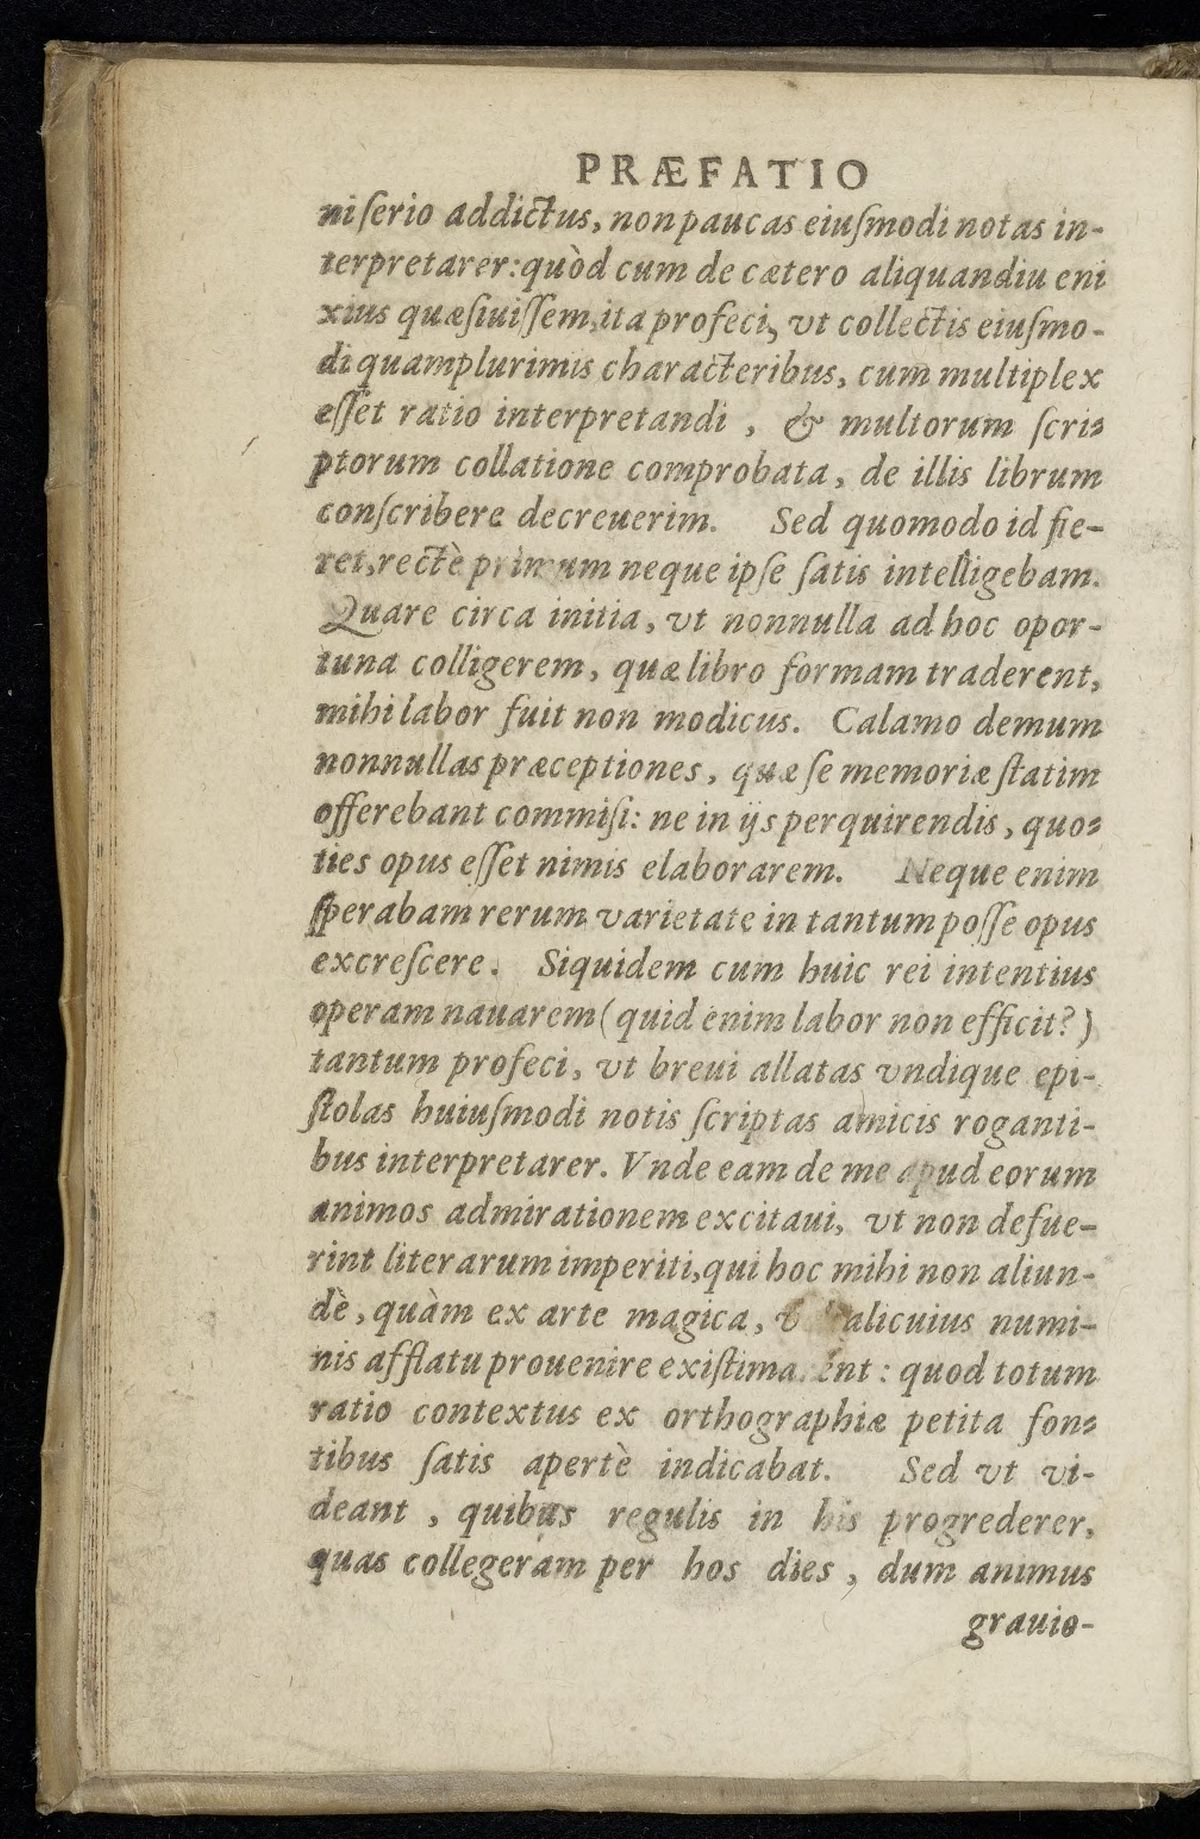 PRÆFATIO
ni ſerio addictus, non paucas eiuſmodi notas in-
terpretarer: quòd cum de cætero aliquandiu eni
xius quæſiuiſſem, ita profeci, vt collectis eiuſmo-
di quamplurimis characteribus, cum multiplex
eſſet ratio interpretandi, & multorum ſcri-
ptorum collatione comprobata, de illis librum
conſcribere decreuerim. Sed quomodo id fie-
ret, rectè primum neque ipſe ſatis intelligebam.
Quare circa initia, vt nonnulla ad hoc opor-
tuna colligerem, quæ libro formam traderent,
mihi labor fuit non modicus. Calamo demum
nonnullas præceptiones, quæ ſe memoriæ ſtatim
offerebant commiſi: ne in ijs perquirendis, quo-
ties opus eſſet nimis elaborarem. Neque enim
ſperabam rerum varietate in tantum poſſe opus
excreſcere. Siquidem cum huic rei intentius
operam nauarem (quid enim labor non efficit?)
tantum profeci, vt breui allatas vndique epi-
ſtolas huiuſmodi notis ſcriptas amicis roganti-
bus interpretarer. Vnde eam de me apud eorum
animos admirationem excitaui, vt non defue-
rint literarum imperiti, qui hoc mihi non aliun-
dè, quàm ex arte magica, alicuius numi-
nis afflatu prouenire exiſtimarent: quod totum
ratio contextus ex orthographiæ petita fon-
tibus ſatis apertè indicabat. Sed vt vi-
deant, quibus regulis in his progrederer,
quas collegeram per hos dies, dum animus
grauio-